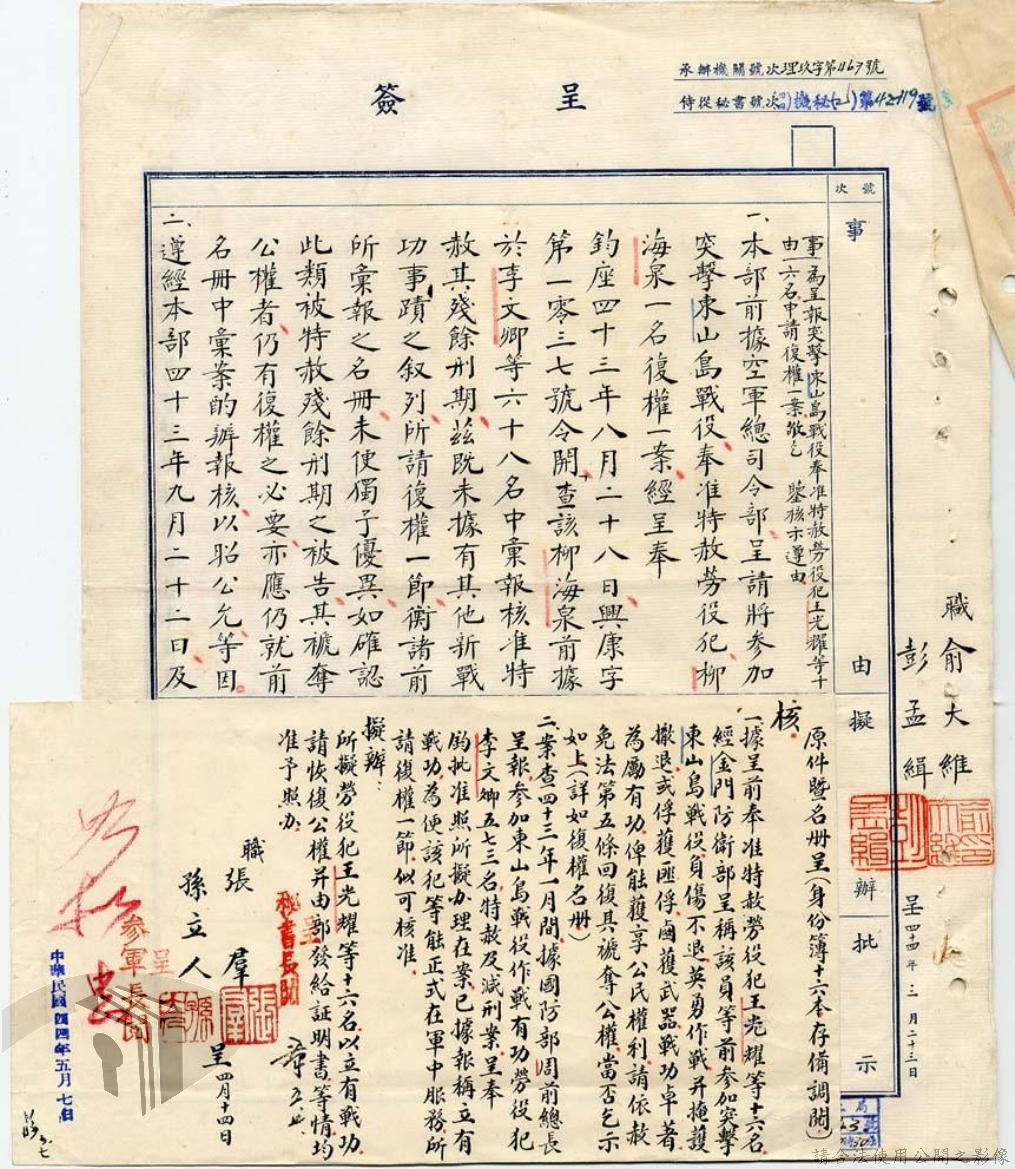 承辦機關號次理玖字第467號
侍從秘書號次(四四)機秘(乙)第42-119號
簽呈
號次
事由擬辦批示
事由 為呈報突擊東山島戰役奉准特赦勞役犯王光耀等十六名申請復權一案敬乞 鑒核示遵由
一、本部前據空軍總司令部呈請將參加
突擊東山島戰役奉准特赦勞役犯柳
海泉一名復權一案經呈奉
鈞座四十三年八月二十八日興康字
第一零三七號令開查該柳海泉前據
於李文卿等六十八名中彙報核准特
赦其殘餘刑期茲既未據有其他新戰
功事蹟之叙列所請復權一節衡諸前
所彙報之名冊未便獨予優異如確認
此類被特赦殘餘刑期之被告其褫奪
公權者仍有復權之必要亦應仍就前
名冊中彙案酌辦報核以昭公允等因
二、遵經本部四十三年九月二十二日及
職俞大維
彭孟緝
呈四十四年三月二十三日
原件暨名册呈(身份簿十六本存備調閱)
核
一、據呈前奉准特赦勞役犯王光耀等十六名
經金門防衛部呈稱該員等前參加突擊
東山島戰役負傷不退英勇作戰并掩護
撤退或俘獲匪俘鹵獲武器戰功卓著
為勵有功俾能獲享公民權利請依赦
免法第五條回復其褫奪公權當否乞示
如上(詳如復權名册)
二、案查四十三年一月間據國防部周前總長
呈報參加東山島戰役作戰有功勞役犯
李文卿五七三名特赦及減刑案呈奉
鈞批准照所擬办理在案已據報稱立有
戰功為便該犯等能正式在軍中服務所
請復權一節似可核准
擬辦:
所擬勞役犯王光耀等十六名以立有戰功
請恢復公權并由部發給証明書等情均
准予照办
職張羣
孫立人
呈四月十四日
秘書長閱
呈
參軍長閱
呈
如擬
中華民國四四年五月七日
請合法使用公開之影像